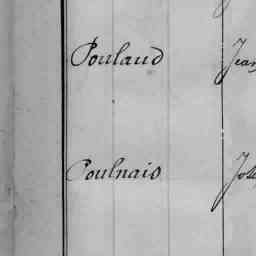 Poulaud Jean
Poulnais